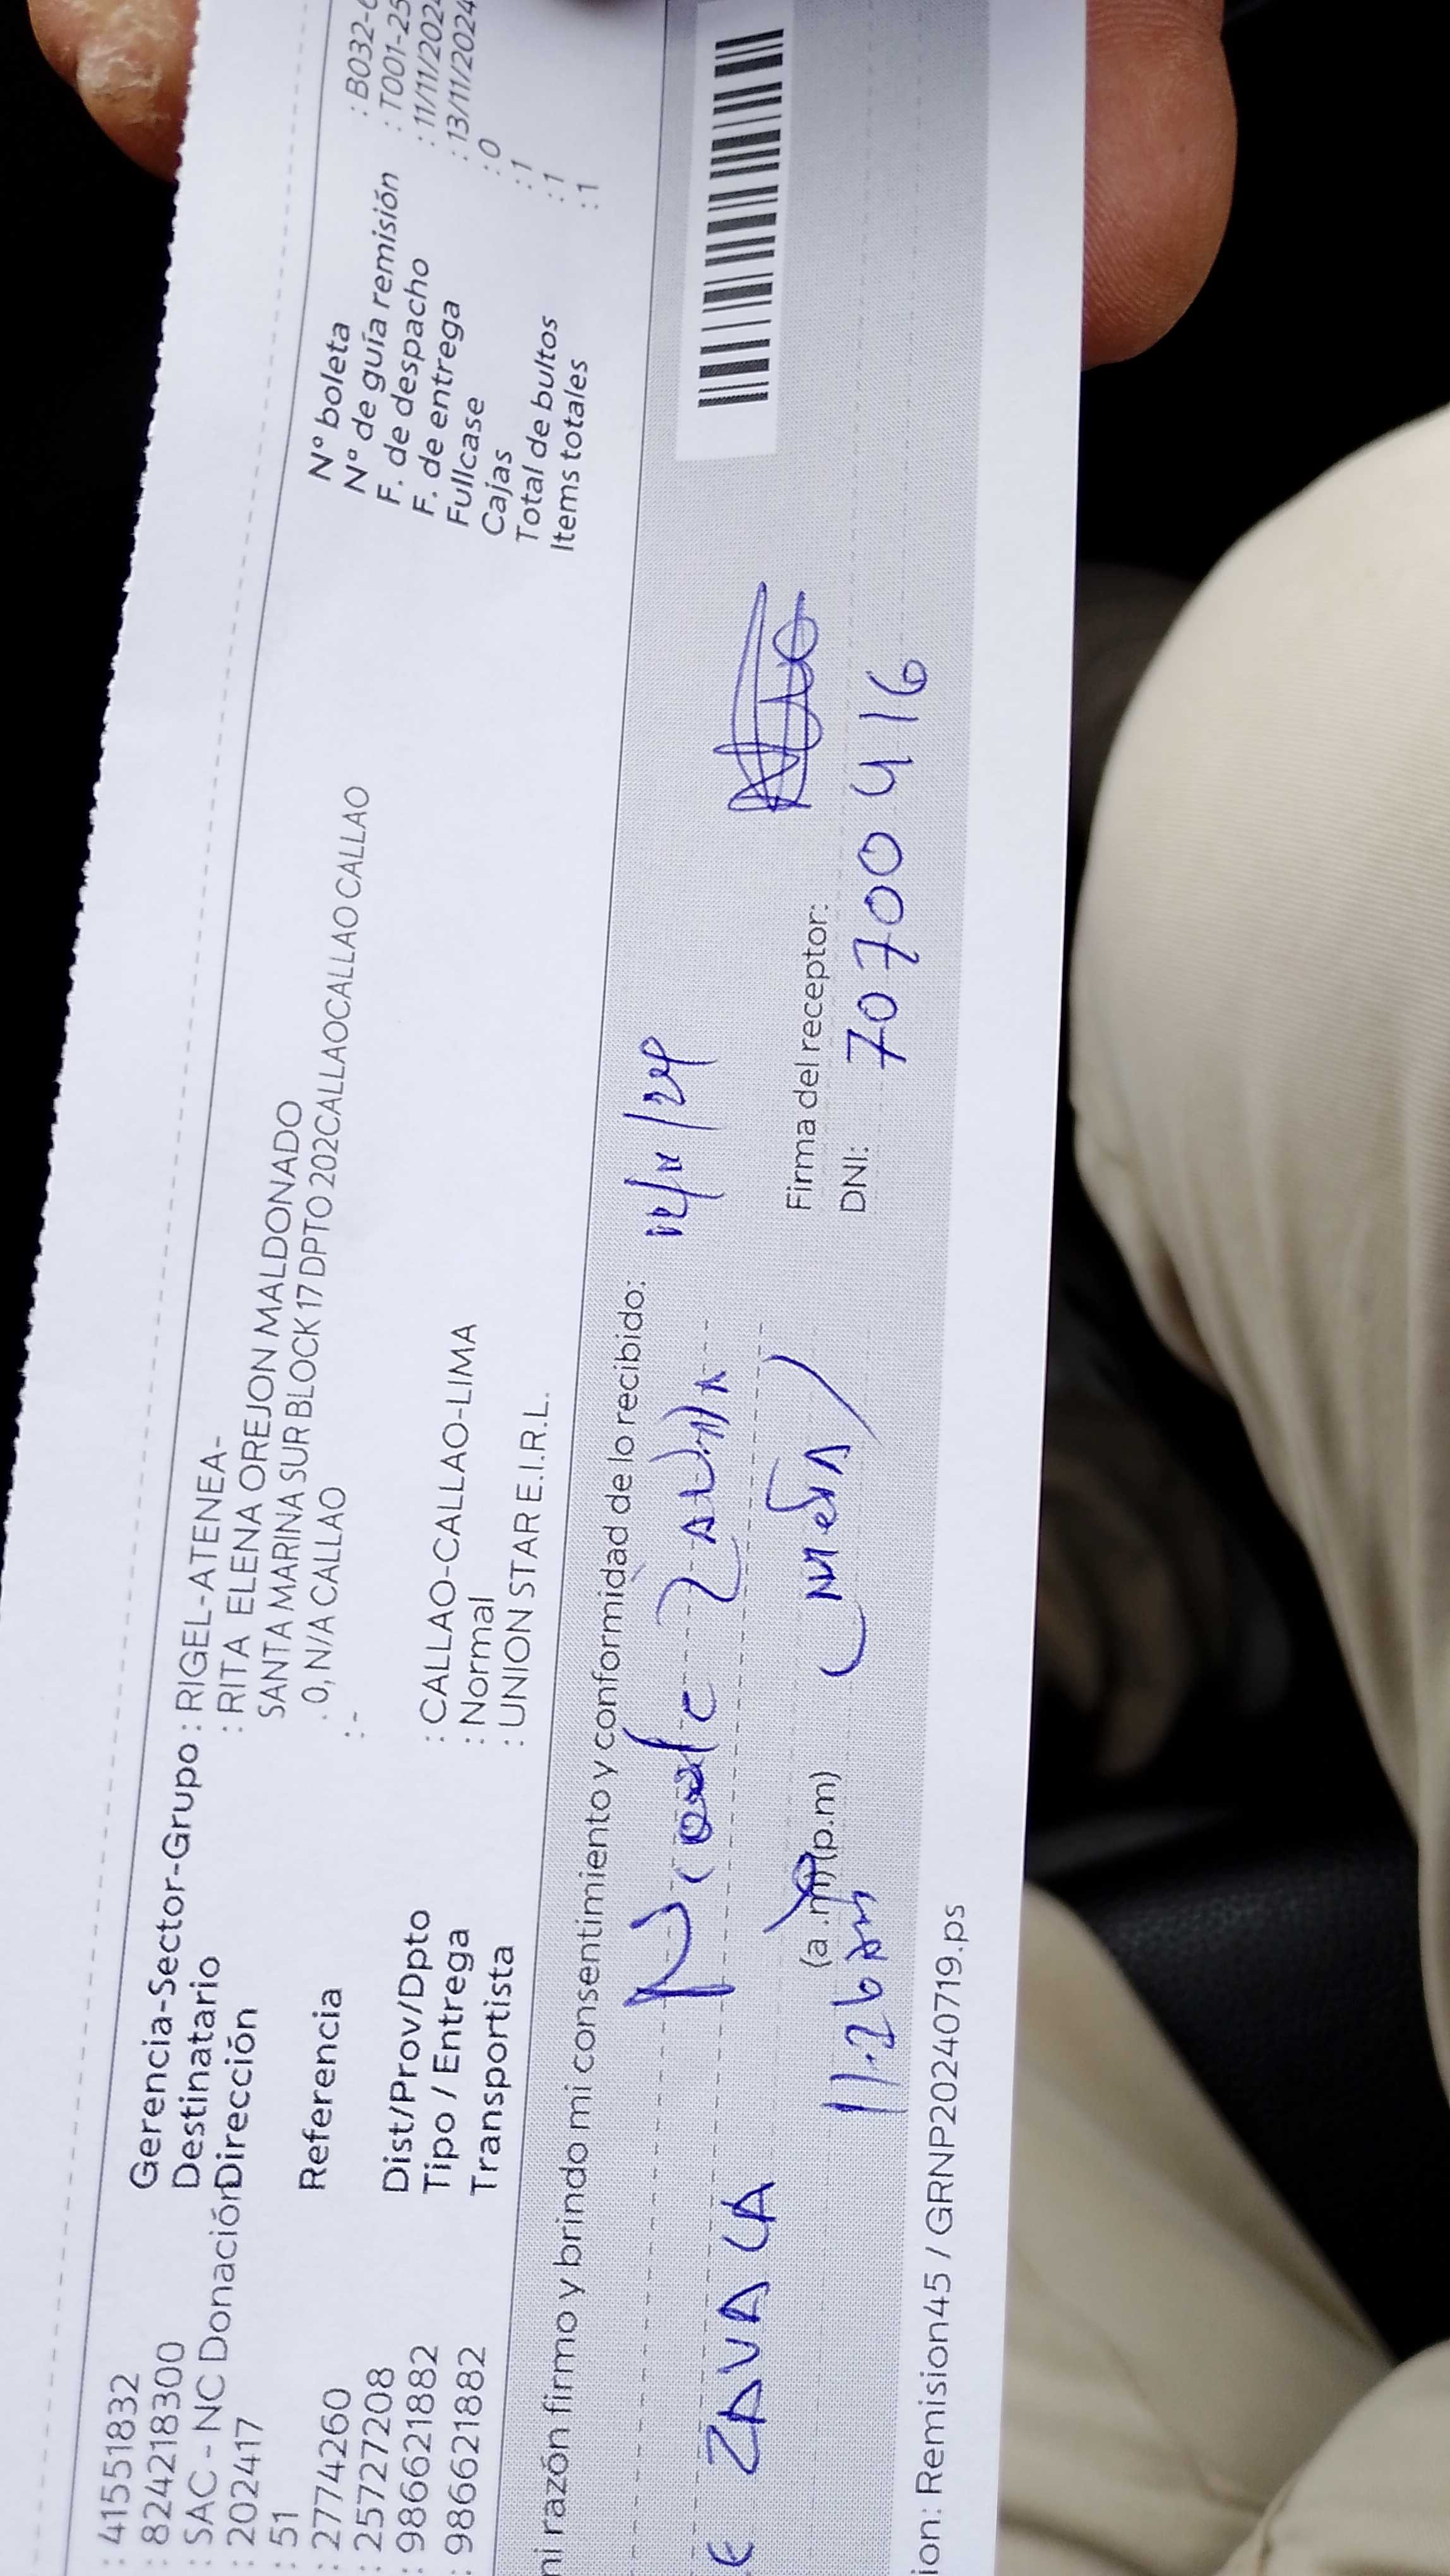 : 41551832
: 824218300
: SAC - NC Donación
: 202417
: 51
: 2774260
: 25727208
: 986621882
: 986621882
Gerencia-Sector-Grupo : RIGEL-ATENEA-
Destinatario : RITA ELENA OREJON MALDONADO
Dirección SANTA MARINA SUR BLOCK 17 DPTO 202CALLAOCALLAOCALLAO
. 0, N/A CALLAO
Referencia : -
Dist/Prov/Dpto : CALLAO-CALLAO-LIMA
Tipo / Entrega : Normal
Transportista : UNION STAR E.I.R.L.
N° boleta : B032-
N° de guía remisión : T001-25
F. de despacho : 11/11/2024
F. de entrega : 13/11/2024
Fullcase : 0
Cajas : 1
Total de bultos : 1
Items totales : 1
razón firmo y brindo mi consentimiento y conformidad de lo recibido:
ZAVALA
11:26 am
(a.m) (p.m)
Firma del receptor:
DNI: 70700416
ion: Remision45 / GRNP20240719.ps